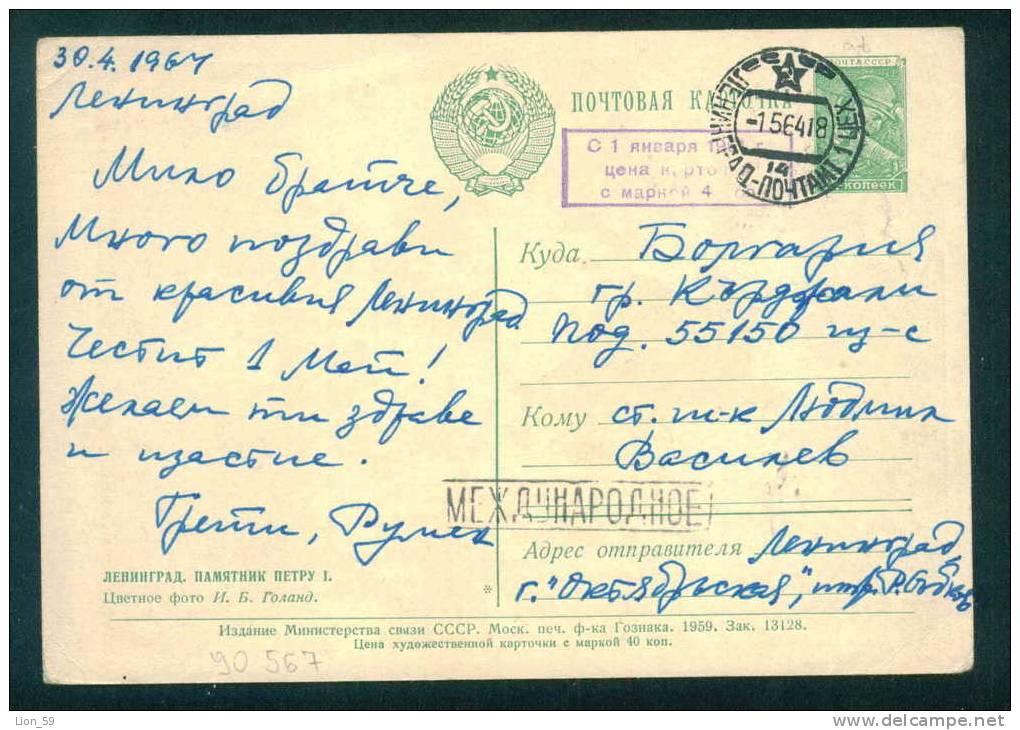 30.4.1964
Ленинград
Мило братче,
Много поздрави
от красивия Ленинград
Честит 1 Май!
Желаем ти здраве
и щастие.
Грети, Румен
ЛЕНИНГРАД. ПАМЯТНИК ПЕТРУ I.
Цветное фото И. Б. Голанд.
ПОЧТОВАЯ КАРТОЧКА
ПОЧТА СССР
копеек
ЛЕНИНГРАД-ПОЧТАМТ
-1.56418
14
С 1 января 19 г.
цена карто
с маркой 4
Куда Болгария
гр. Кърджали
под. 55150 
Кому Людмил
Василев
МЕЖДУНАРОДНОЕ
Адрес отправителя Ленинград,
г. "Октябрьская",
*
Издание Министерства связи СССР. Моск. печ. ф-ка Гознака. 1959. Зак. 13128.
Цена художественной карточки с маркой 40 коп.
90 567
Lion_59